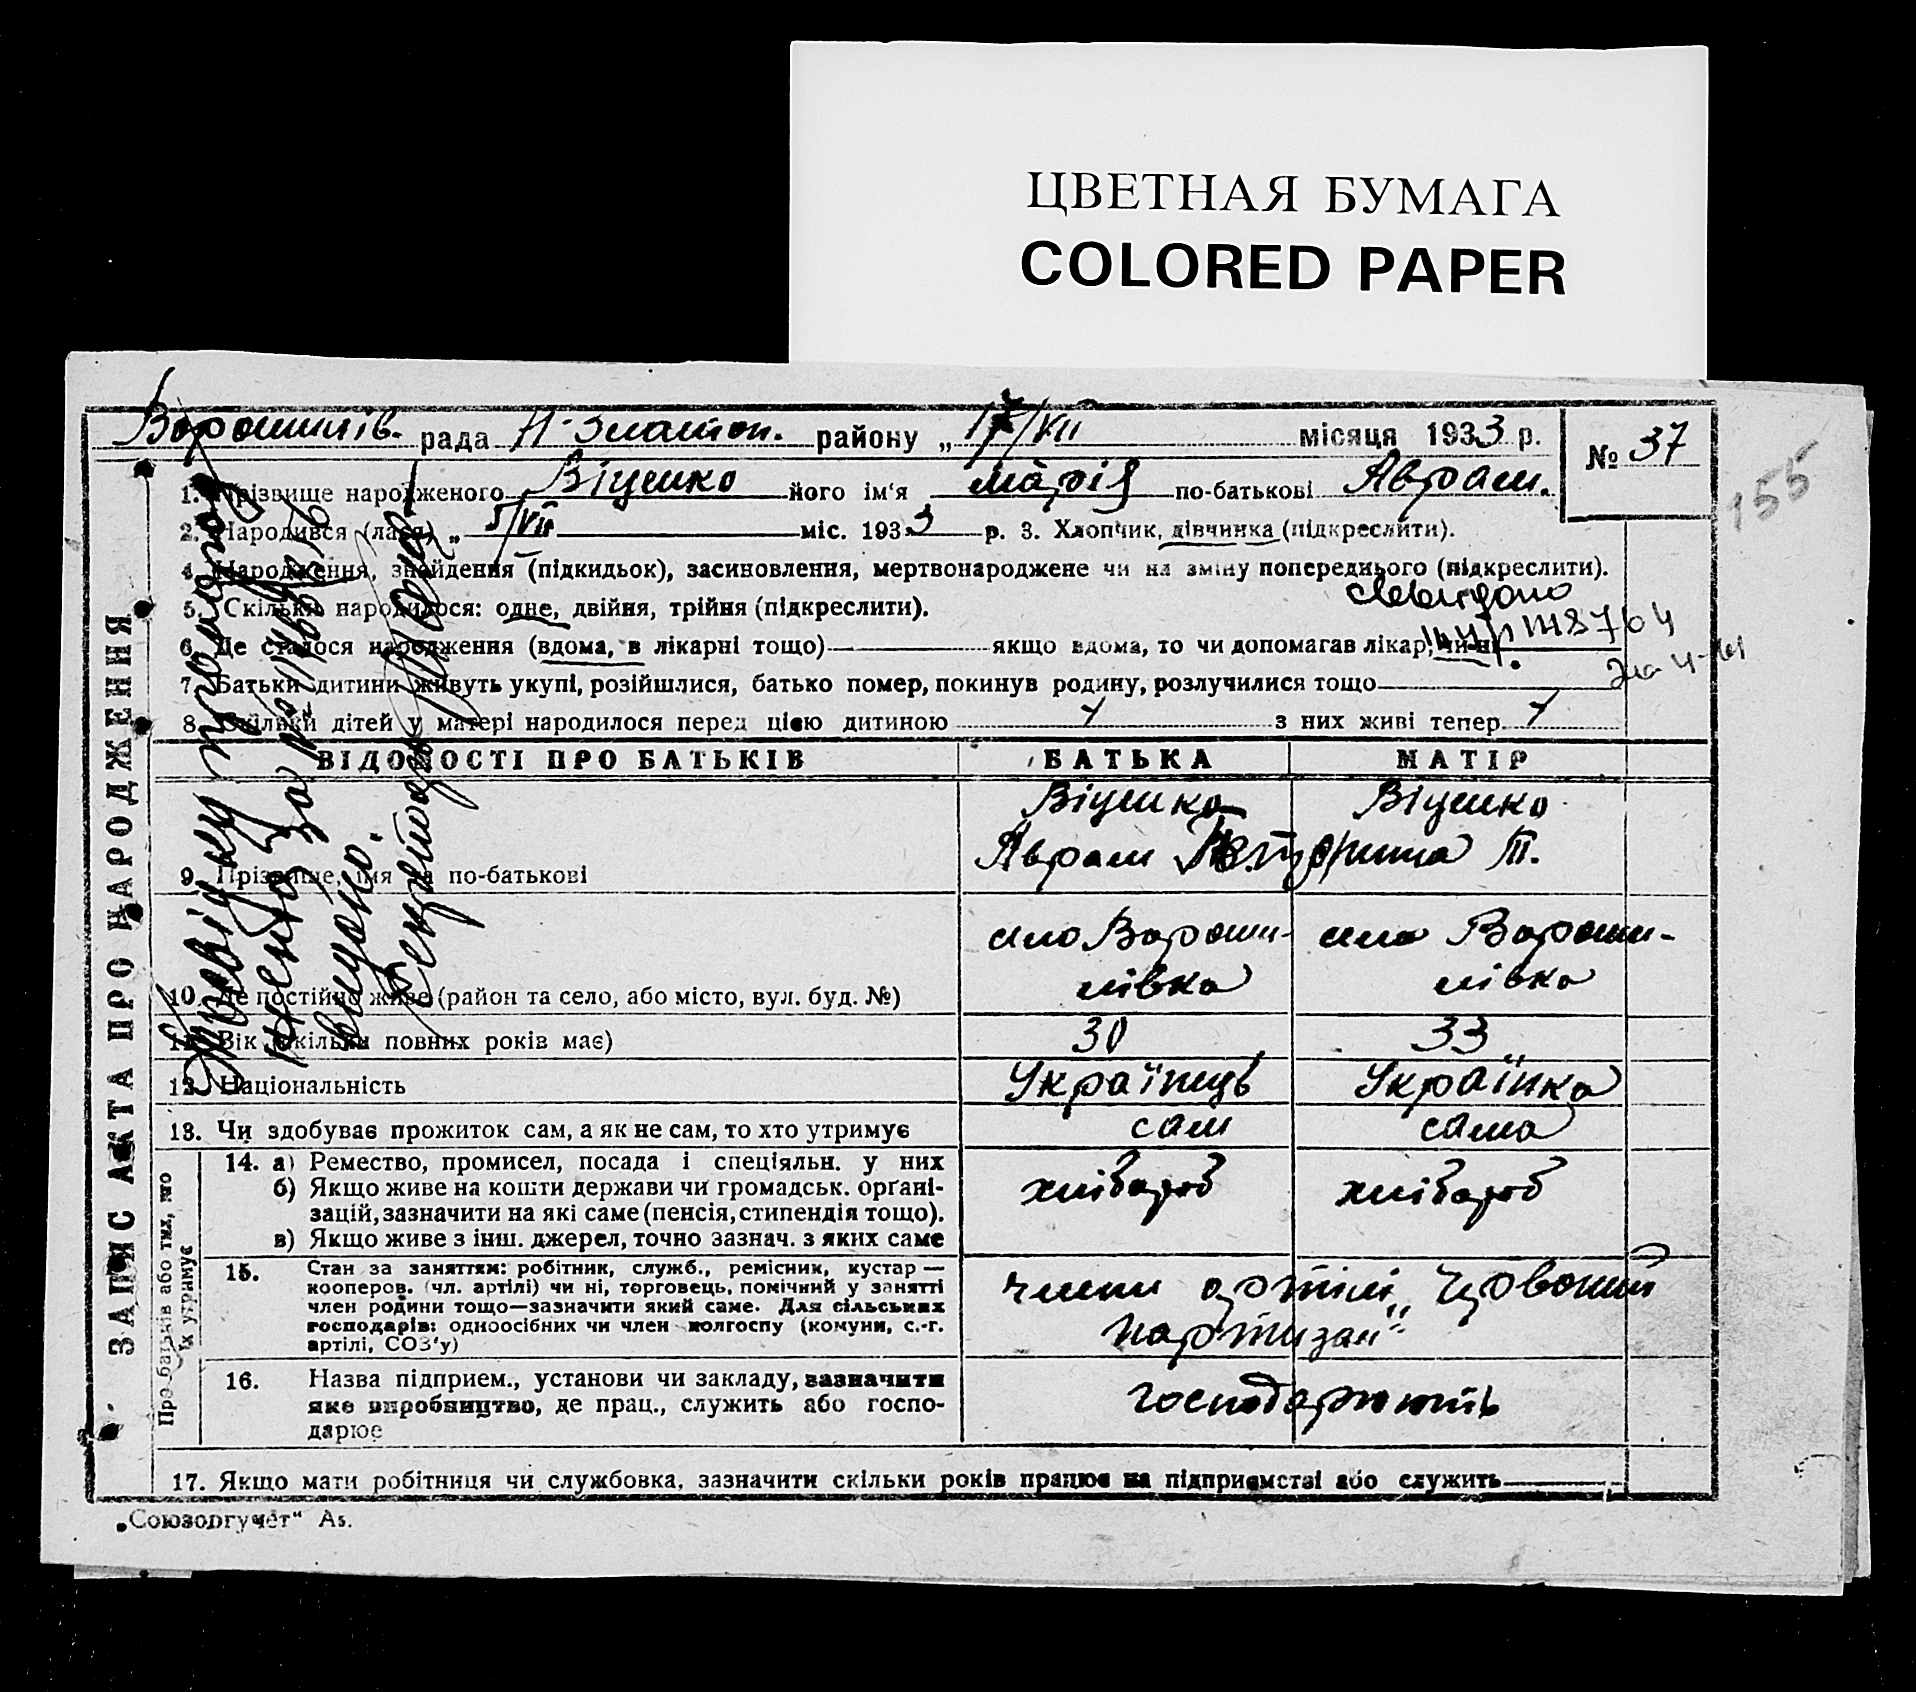 ЦВЕТНАЯ БУМАГА
COLORED PAPER
Ворошилів. рада Н-Златоп. району „ 17/VII місяця 1933 р.
№ 37
155
1. Прізвище народженого Віценко його ім'я Марія по-батькові Аврам.
2. Народився (лася) „ 5/VII міс. 1933 р. 3. Хлопчик, дівчинка (підкреслити).
4. Народження, знайдення (підкидьок), засиновлення, мертвонароджене чи на зміну попереднього (підкреслити).
5. Скільки народилося: одне, двійня, трійня (підкреслити).
6. Де сталося народження (вдома, в лікарні тощо) якщо вдома, то чи допомагав лікар, чи ні
7. Батьки дитини живуть укупі, розійшлися, батько помер, покинув родину, розлучилися тощо
8. Скільки дітей у матері народилося перед цією дитиною 1 з них живі тепер 1
ВІДОМОСТІ ПРО БАТЬКІВ БАТЬКА МАТІР
Віценко Віценко
9. Прізвище, імя та по-батькові Аврам
село Вороши- село Вороши-
10. Де постійно живе (район та село, або місто, вул. буд. №) лівка лівка
11. Вік (скільки повних років має) 30 33
12. Національність Українець Українка
13. Чи здобуває прожиток сам, а як не сам, то хто утримує сам сама
14. а) Ремество, промисел, посада і спеціяльн. у них хлібороб хлібороб
б) Якщо живе на кошти держави чи громадськ. орґані-
зацій, зазначити на які саме (пенсія, стипендія тощо).
в) Якщо живе з інш. джерел, точно зазнач. з яких саме
15. Стан за заняттям: робітник, служб., ремісник, кустар —
кооперов. (чл. артілі) чи ні, торговець, помічний у занятті
член родини тощо—зазначити який саме. Для сільських
господарів: одноосібних чи член колгоспу (комуни, с.-г.
артілі, СОЗ'у)
члени артілі „Червоний
партизан"
16. Назва підприєм., установи чи закладу, зазначити
яке виробництво, де прац., служить або госпо-
дарює
господарюють
17. Якщо мати робітниця чи службовка, зазначити скільки років працює на підприємстві або служить
ЗАПИС АКТА ПРО НАРОДЖЕННЯ
Про батьків або тих, хто
їх утримує
„Союзоргучёт" А5.